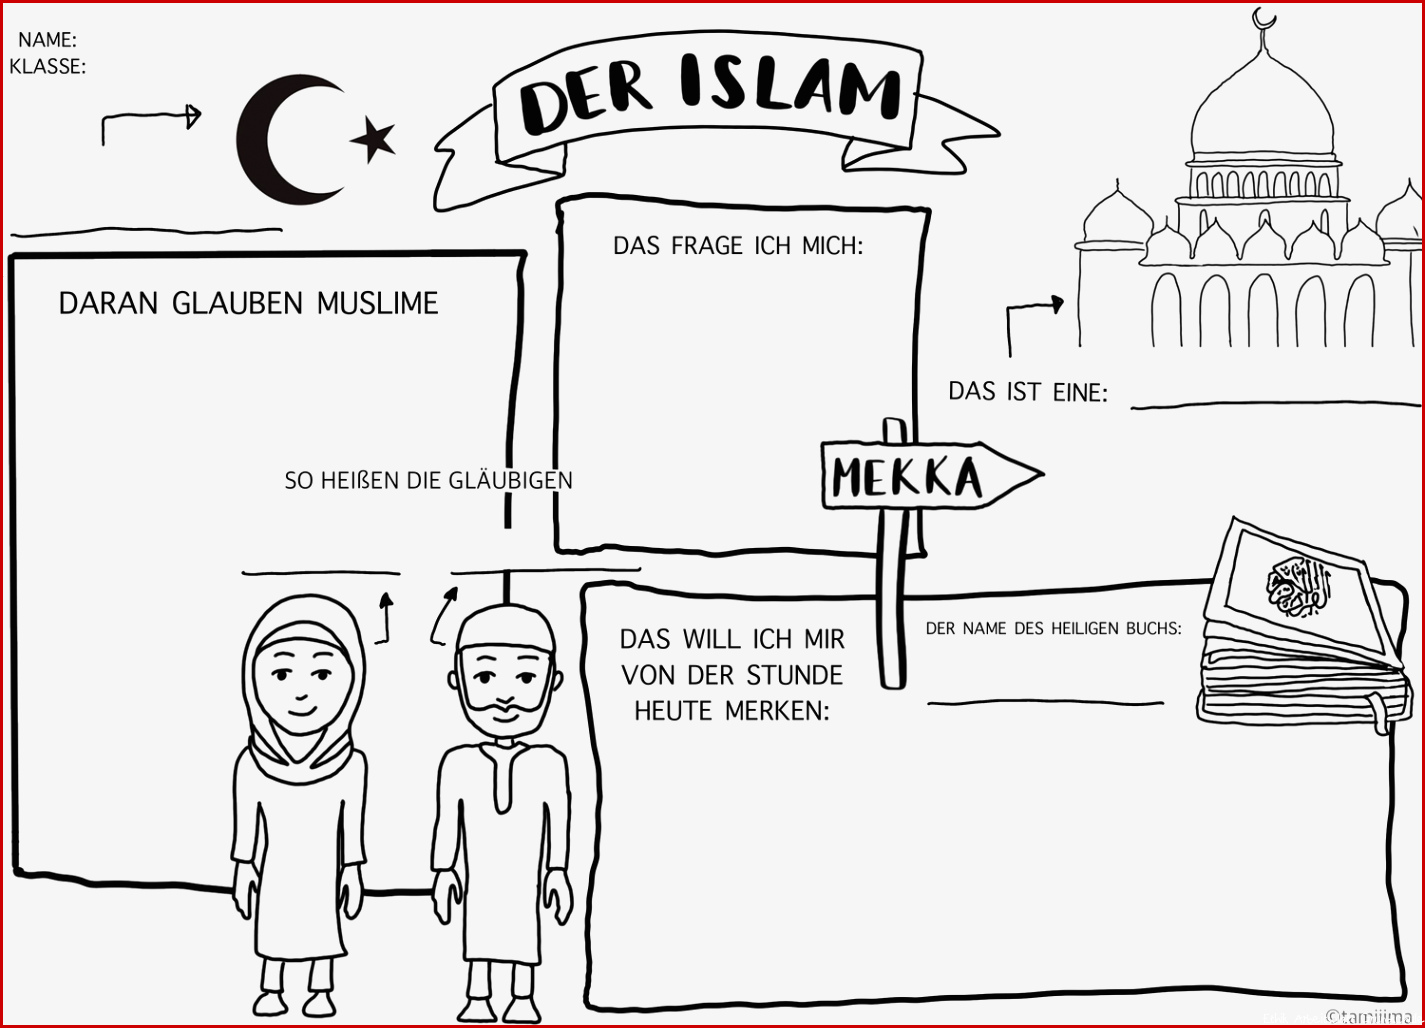 NAME:
KLASSE:
DER ISLAM
DAS FRAGE ICH MICH:
DARAN GLAUBEN MUSLIME
DAS IST EINE:
MEKKA
SO HEIßEN DIE GLÄUBIGEN
DAS WILL ICH MIR
VON DER STUNDE
HEUTE MERKEN:
DER NAME DES HEILIGEN BUCHS:
©tamijima